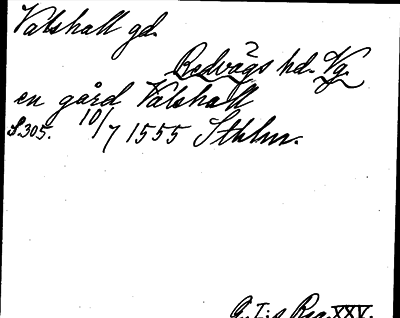 Valshall gd.
Redvägs hd. Vg.
en gård Valshall
S.305. 10/7 1555 Sthlm.
G. I:s Reg. XXV.